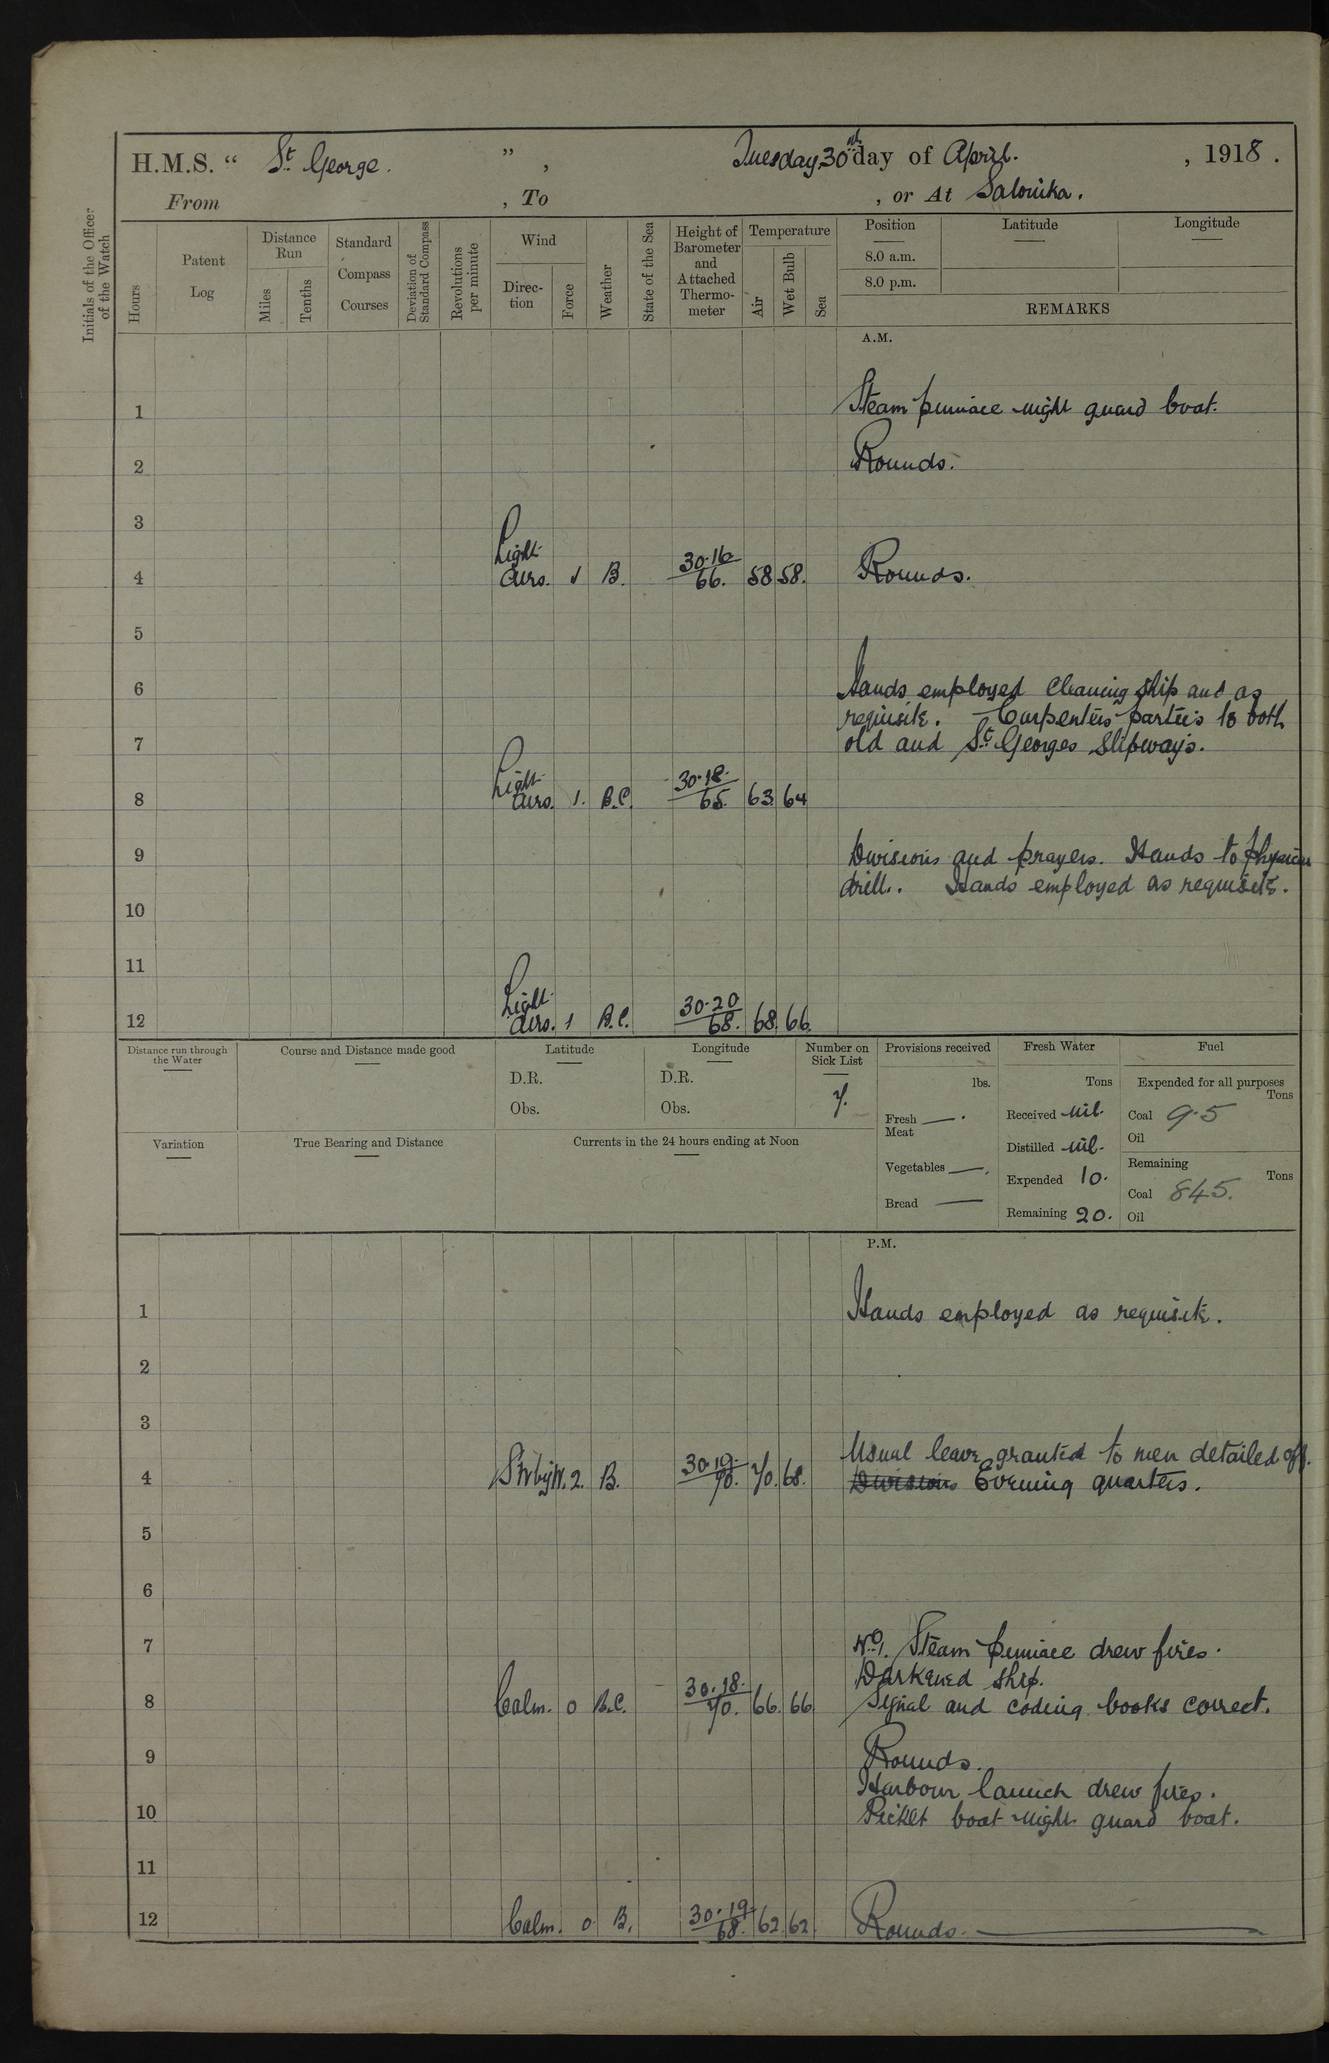 H.M.S. “ St George. ” , Tuesday 30th day of April. , 1918.
From , To , or At Salonika.
Initials of the Officer of the Watch
Hours
Patent Log
Distance Run
Miles
Tenths
Standard Compass Courses
Deviation of Standard Compass
Revolutions per minute
Wind
Direction
Force
Weather
State of the Sea
Height of Barometer and Attached Thermometer
Temperature
Air
Wet Bulb
Sea
Position Latitude Longitude
8.0 a.m.
8.0 p.m.
REMARKS
A.M.
1 Steam pinnace night guard boat.
2 Rounds.
3
4 Light Airs. 1 B. 30.16 66. 58 58. Rounds.
5
6 Hands employed cleaning ship and as
requisite. Carpenters parties to both
7 old and St Georges Slipways.
8 Light Airs. 1. B.C. 30.18. 65. 63 64
9 Divisions and prayers. Hands to physical
drill. Hands employed as requisite.
10
11
12 Light Airs. 1 B.C. 30.20 68. 68. 66.
Distance run through the Water
Course and Distance made good
Latitude
D.R.
Obs.
Longitude
D.R.
Obs.
Number on Sick List
7.
Provisions received
lbs.
Fresh Meat — .
Vegetables — .
Bread —
Fresh Water
Tons
Received nil.
Distilled nil.
Expended 10.
Remaining 20.
Fuel
Expended for all purposes
Tons
Coal 9.5
Oil
Remaining
Tons
Coal 845.
Oil
Variation
True Bearing and Distance
Currents in the 24 hours ending at Noon
P.M.
1 Hands employed as requisite.
2
3
Usual leave granted to men detailed off.
4 SWbyW. 2. B. 30.19. 70. 70. 68. Divisions Evening quarters.
5
6
7 No 1. Steam pinnace drew fires.
Darkened ship.
8 Calm. 0 B.C. 30.18. 70. 66. 66 Signal and coding books correct.
9 Rounds.
Harbour launch drew fires.
10 Picket boat night guard boat.
11
12 Calm. 0 B. 30.19 68. 62 62 Rounds.